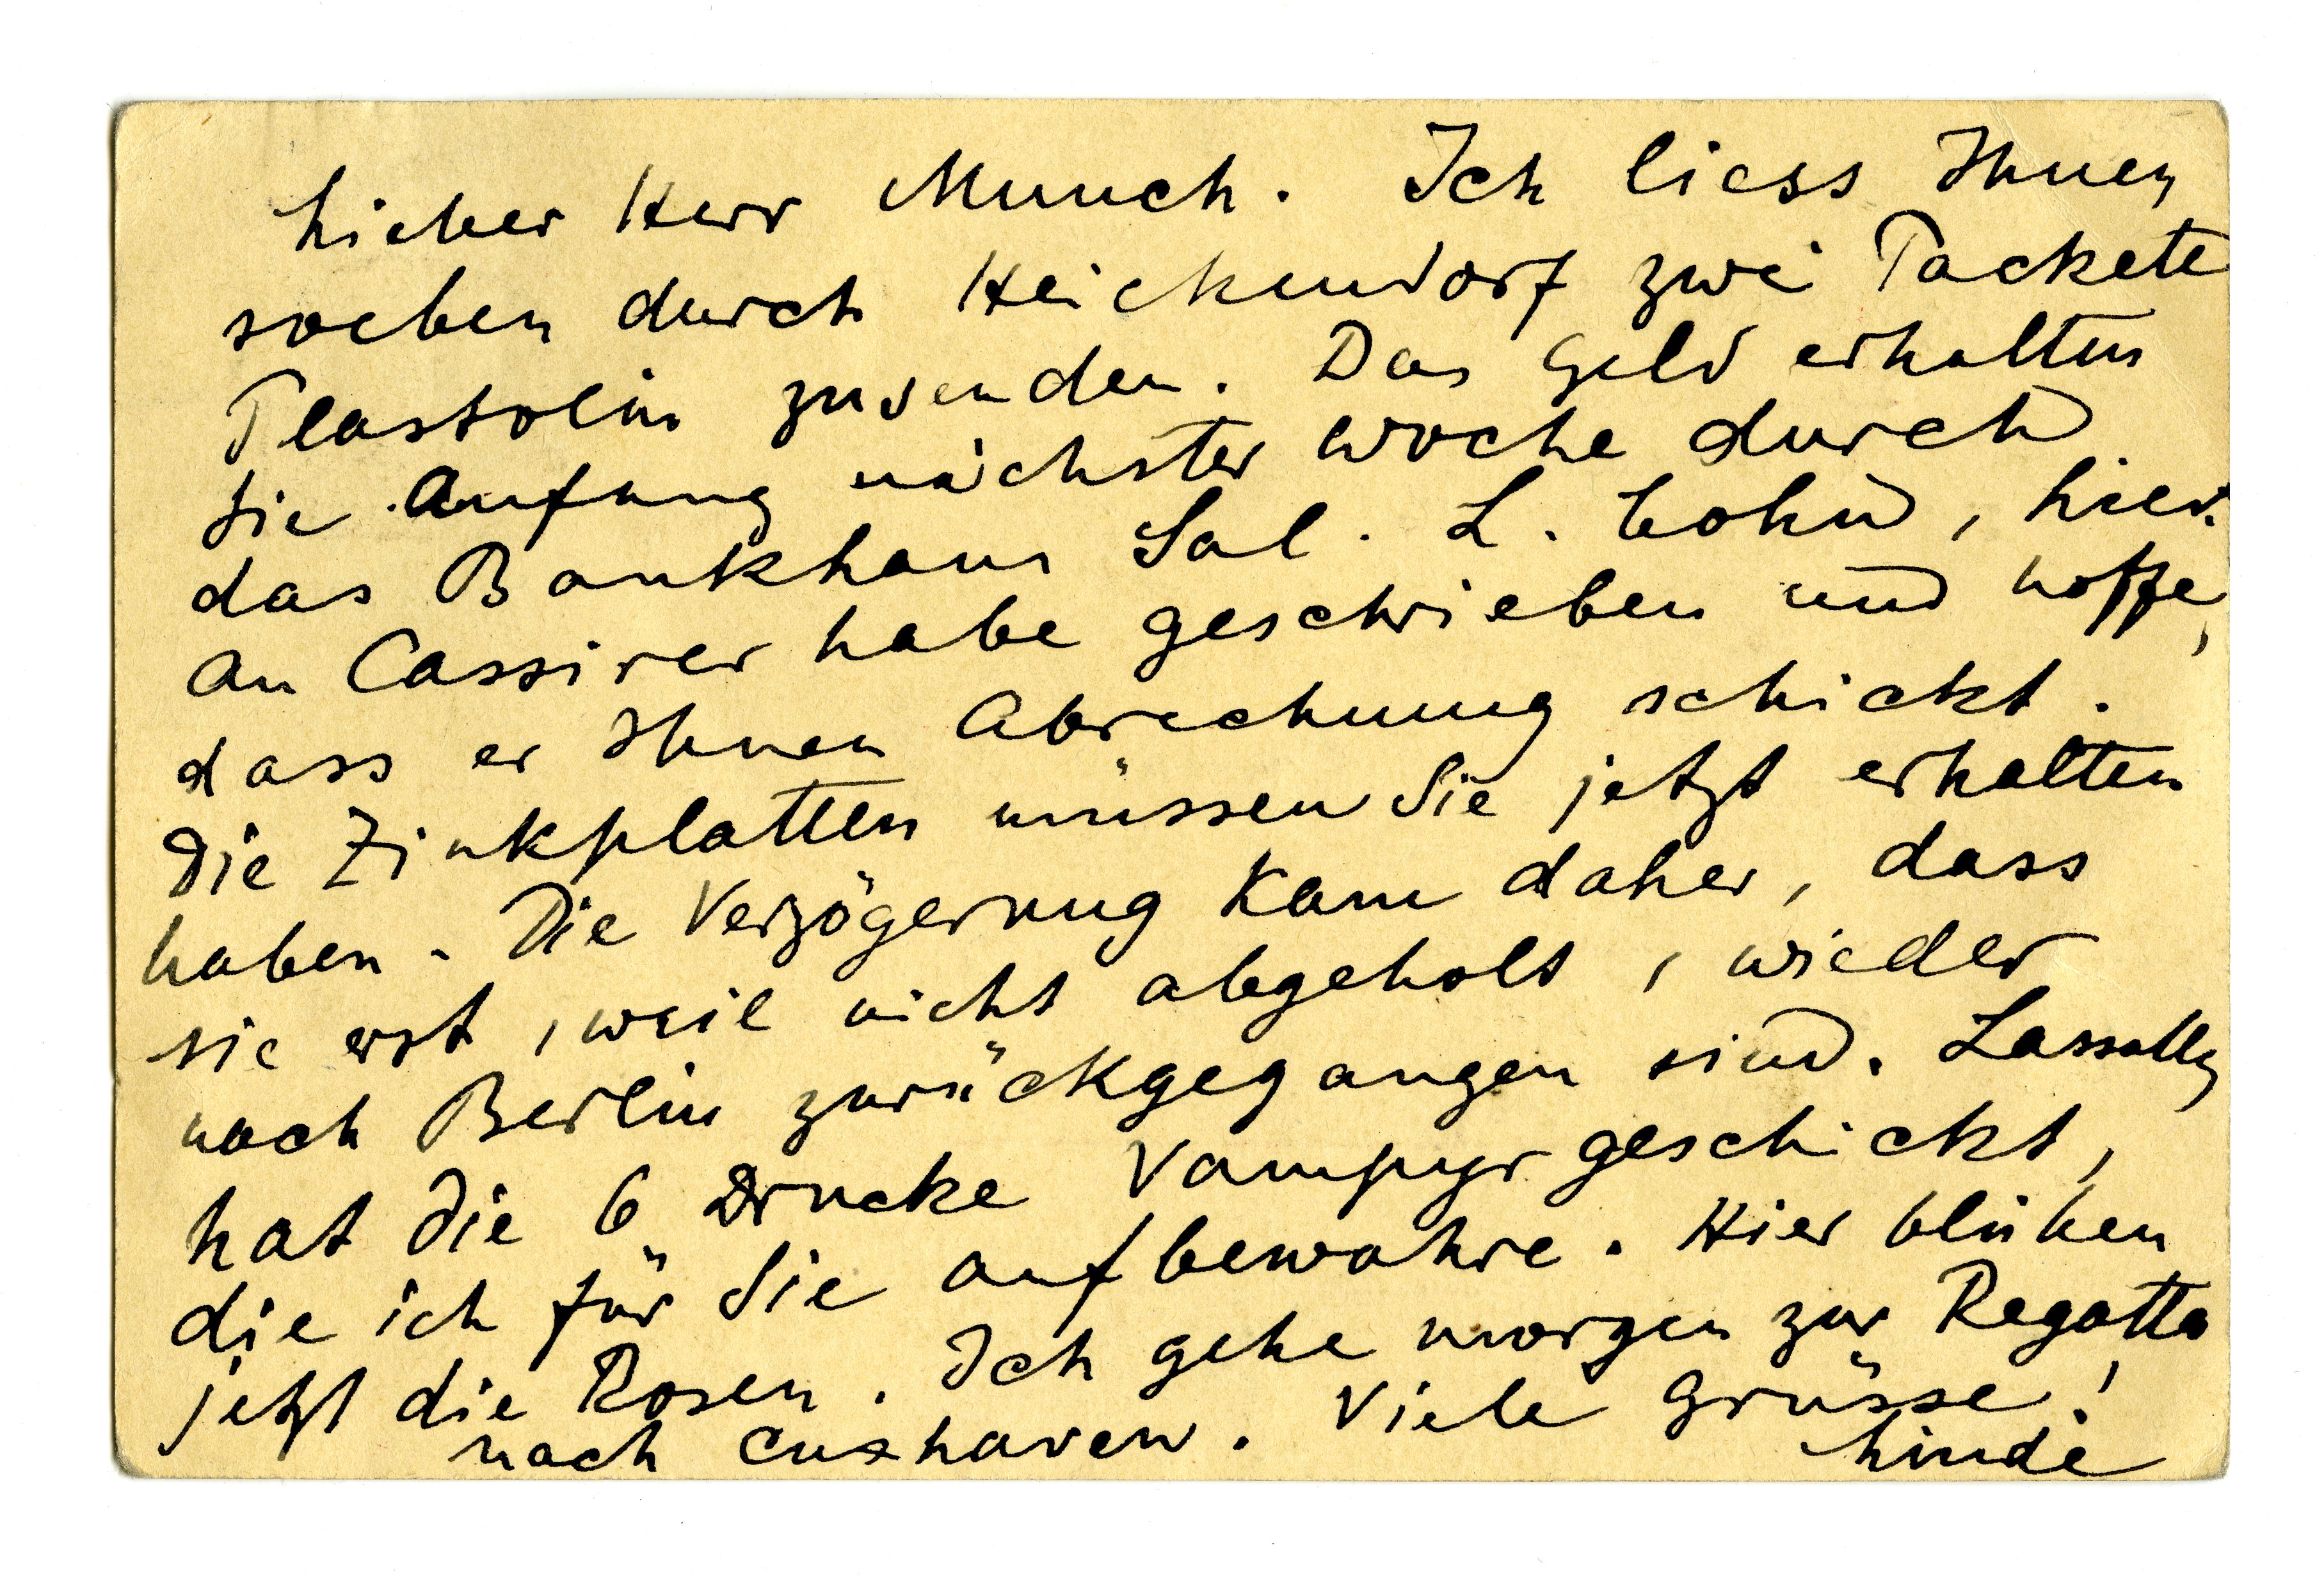 Lieber Herr Munch. Ich liess Ihnen
soeben durch Heickendorf zwei Packete
Plastolin zusenden. Das Geld erhalten
Sie Anfang nächster Woche durch
das Bankhaus Sal. L. Cohn, hier.
An Cassirer habe geschrieben und hoffe,
dass er Ihnen Abrechnung schickt.
Die Zinkplatten müssen Sie jetzt erhalten
haben. Die Verzögerung kam daher, dass
sie erst, weil nicht abgeholt, wieder
nach Berlin zurückgegangen sind. Lassally
hat die 6 Drucke Vampyr geschickt,
die ich für Sie aufbewahre. Hier blühen
jetzt die Rosen. Ich gehe morgen zur Regatta
nach Cuxhaven. Viele Grüsse!
Linde